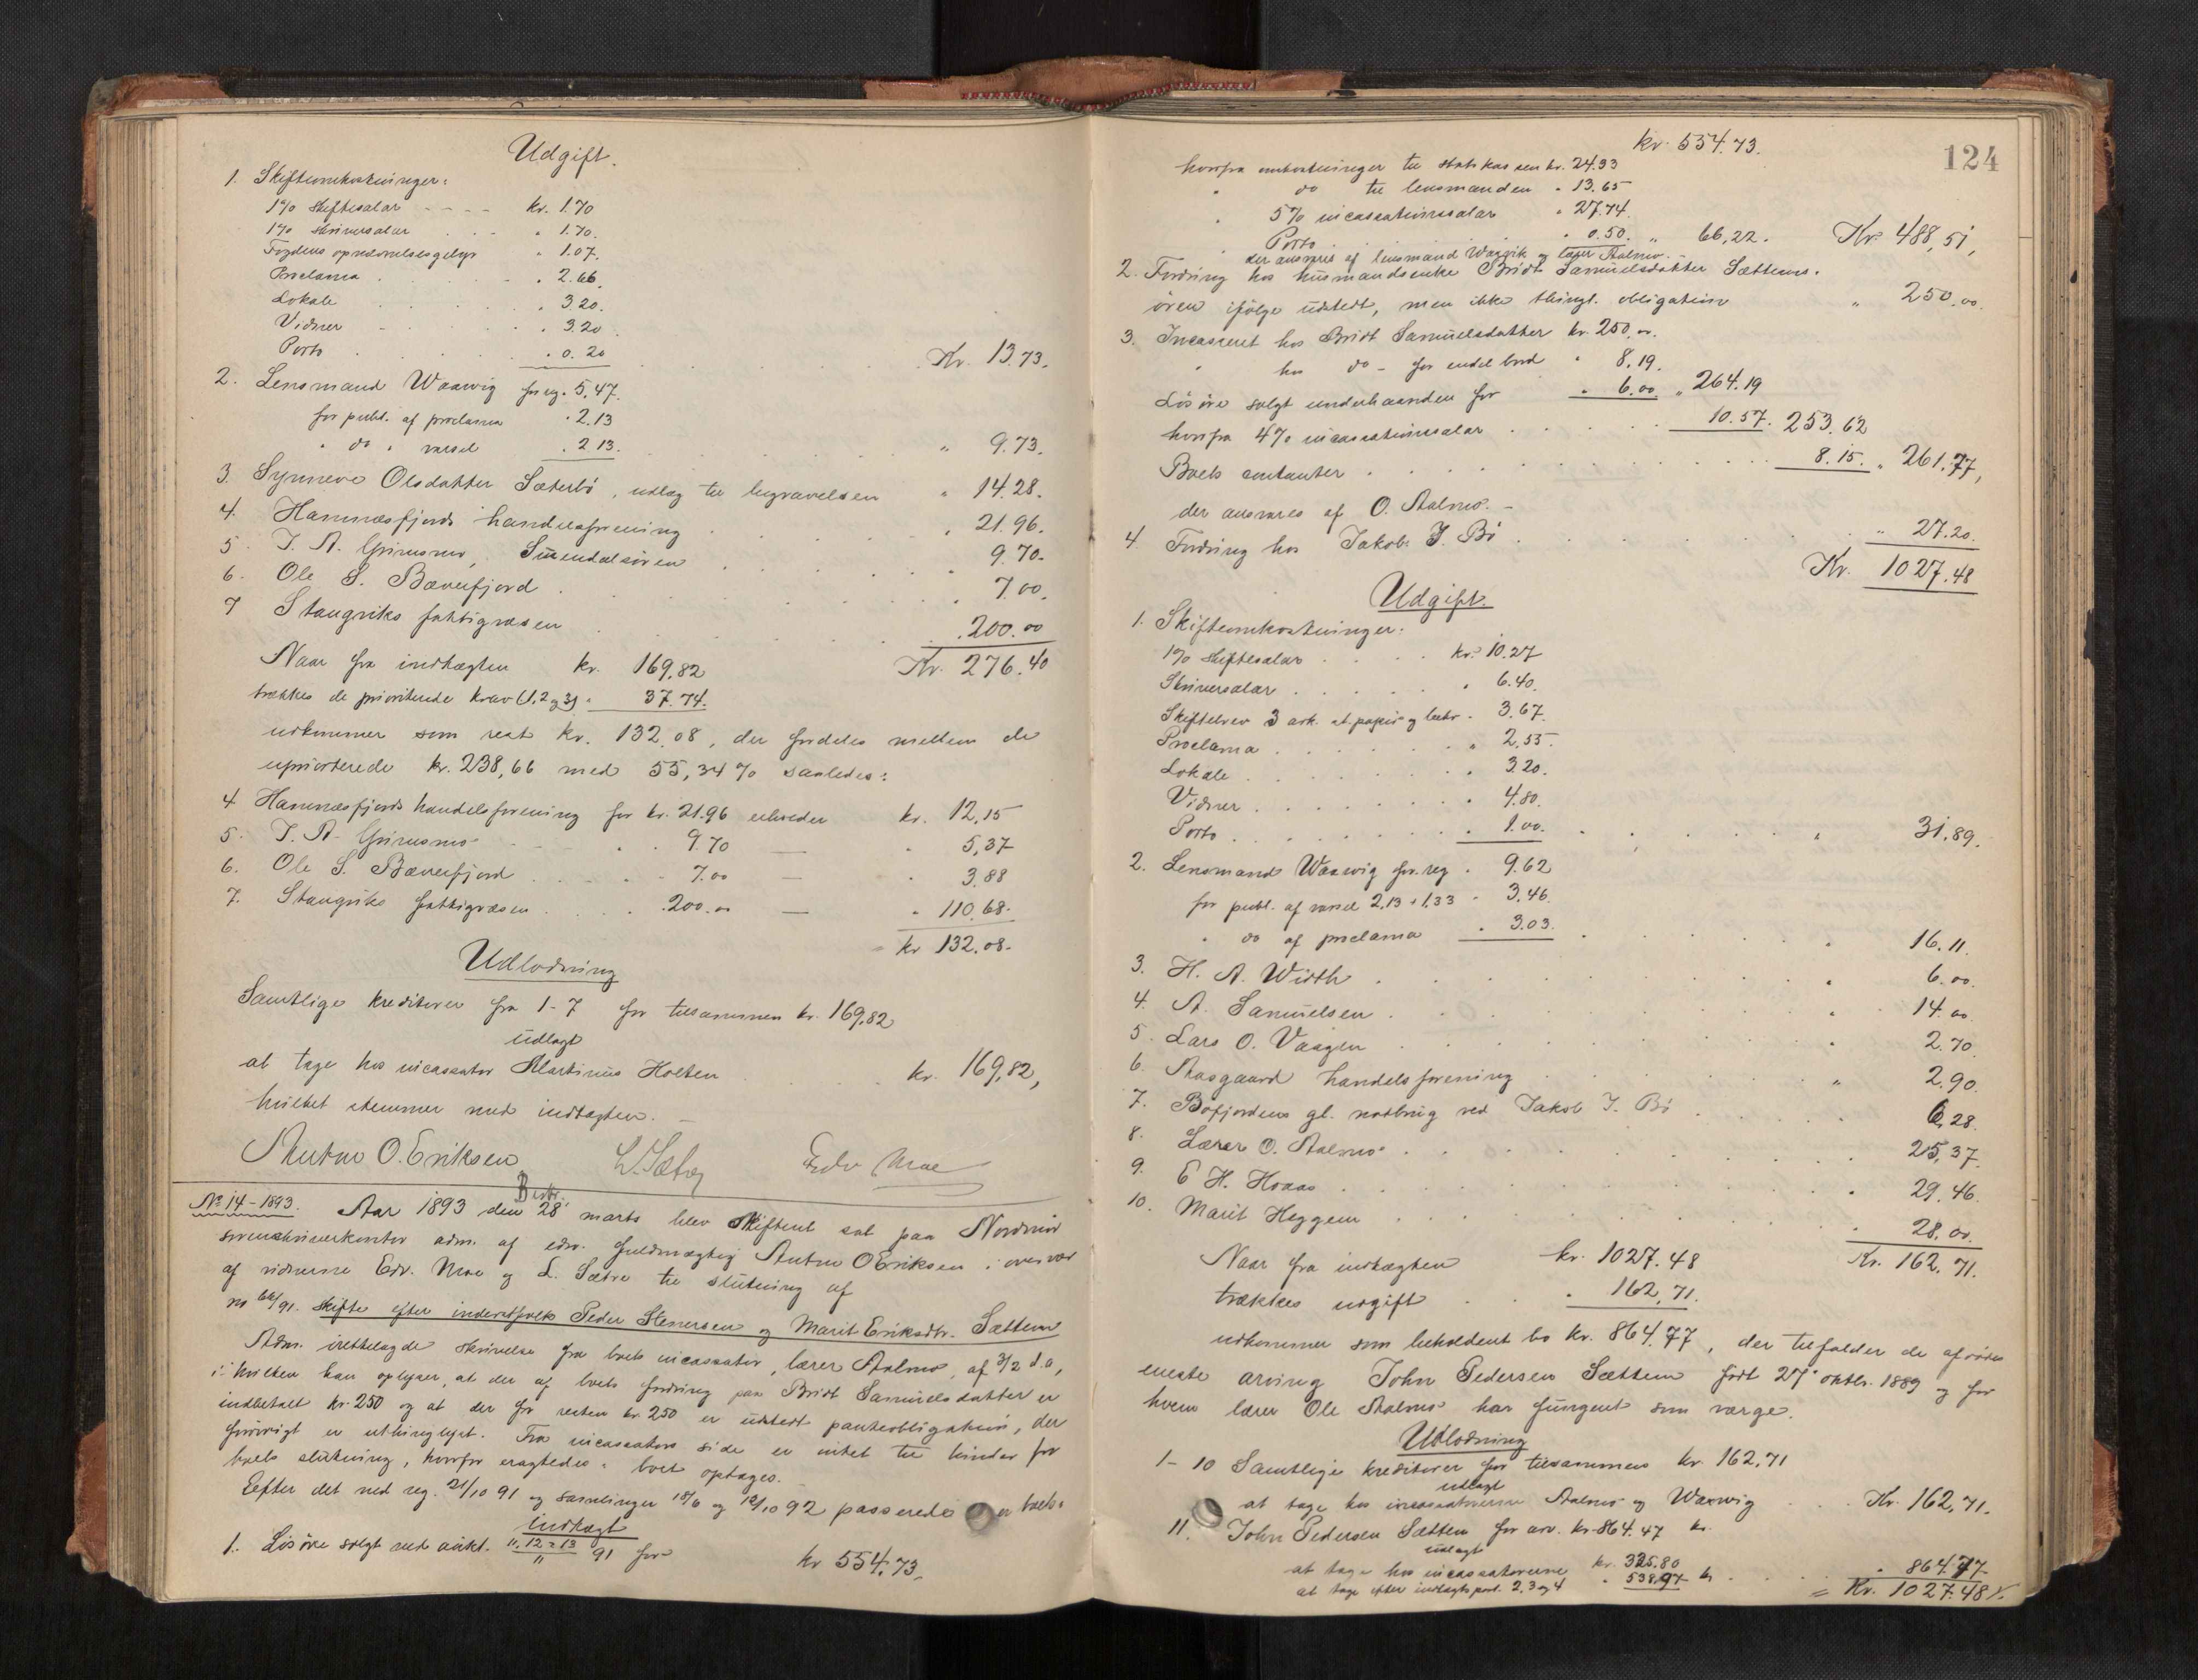 Udgift.
1. Skifteomkostninger:
1% skiftesalar - - - - kr. 1.70
1% skriversalar . . . " 1.70.
Fogdens opnævnelsesgebyr " 1.07.
Proclama . . . . " 2.66.
Lokale . . . . " 3.20.
Vidner - . . . " 3.20.
Porto . . . . " 0.20 Kr. 13.73.
2. Lensmand Waawig for reg. 5,47.
for publ. af proclama " 2.13
" do " varsel " 2.13. " 9.73.
3. Synneve Olsdatter Sæterbö, udlæg til begravelsen " 14.28.
4. Hamnæsfjords handelsforening . . 21.96.
5. J. A. Grimsmo, Surendalsören . . 9.70.
6. Ole S. Bæverfjord . . . 7.00.
7 Stangviks fattigvæsen . . . 200.00
Kr. 276.40
Naar fra indtægten kr. 169,82
trækkes de prioriterede krav (1,2 og 3) " 37.74.
udkommer som rest kr. 132,08, der fordeles mellem de
upriorterede kr. 238,66 med 55,34% saaledes:
4 Hamnæsfjords handelsforening for kr. 21.96 erholder kr. 12,15
5. J. A. Grimsmo - - . . 9.70 — " 5,37
6. Ole S. Bæverfjord . . . 7.00 — " 3.88
7. Stangviks fattigvæsen . . . 200.00 — " 110.68.
= kr 132.08.
Udlodning
Samtlige kreditorer fra 1-7 for tilsammen kr. 169,82
udlagt
at tage hos incassator Martinus Holten . . . kr. 169,82,
hvilket stemmer med indtægten. —
Anton O. Eriksen L. Sæter Edv Moe
No 14-1893. Aar 1893 den 28 marts blev skifteret sat paa Nordmör
sorenskriverkontor adm. af edsv. fuldmægtig Anton O Eriksen i overvær
af vidnerne Edv. Moe og L. Sætre til slutning af
no 66/91. skifte efter inderstfolk Peder Stenersen og Marit Eriksdtr. Sættem
Adm. irettelagde skrivelse fra boets incassator, lærer Aalmo, af 3/2 d.a,
i hvilken han oplyser, at der af boets fordring paa Bridt Samuelsdatter er
indbetalt kr. 250 og at der for resten kr. 250 er udstedt panteobligation, der
forövrigt er uthinglyst. Fra incassators side er intet til hinder for
boets slutning, hvorfor eragtedes: boet optages.
Eefter det ved reg. 21/10 91 og samlinger 18/6 og 12/10 92 passerede er boets:
indtægt
1. Lösöre solgt ved aukt. 11, 12 = 13/11 91 for kr 554,73.
124
kr. 554.73.
hvorfra omkostninger til statskassen kr. 24.33
" do til lensmanden " 13.65
" 5% incassationssalar " 27.74.
" Porto . . . " 0.50. " 66,22. Kr. 488,51,
der ansvares af lensmand Waagvik og lærer Aalmo.
2. Fordring hos husmandsenke Bridt Samuelsdatter Sættems.
ören ifölge udstedt, men ikke thingl. obligation " 250.00
3. Incasseret hos Bridt Samuelsdatter kr. 250.00.
" hos do - for endel bord " 8,19.
Lösöre solgt underhaanden for " 6.00. " 264.19
hvorfra 4% incassationssalar . . . 10.57. 253.62
Boets contanter . . . . . 8.15. " 261.77,
der ansvares af O. Aalmo. -
4. Fordring hos Jakob J. Bö . . . . " 27.20.
Kr. 1027.48
Udgift.
1. Skifteomkostninger:
1% skiftesalar . . . . kr. 10.27
Skriversalar . . . . " 6.40.
Skiftebrev 3 ark. st. papir og bektr. " 3.67.
Proclama . . . . " 2,55.
Lokale . . . . " 3.20.
Vidner . . . . " 4.80.
Porto . . . . " 1.00. . . . " 31.89.
2. Lensmand Waawig for reg " 9.62
for publ. af varsel 2,13+1,33 " 3,46.
" do af proclama " 3.03. . . . " 16.11.
3. H. A. Wirth . . . . " 6.00.
4. A. Samuelsen . . . . " 14.00.
5. Lars O. Vaagen . . . . " 2.70.
6. Aasgaard handelsforening . . . " 2.90.
7. Böfjordens gl. notbrug ved Jakob J. Bö . . . 6,28.
8. Lærer O. Aalmo . . . . 25,37.
9. E H. Hoaas . . . . " 29.46.
10. Marit Heggem . . . . " 28.00.
Kr. 162.71.
Naar fra indtægten kr. 1027.48
trækkes udgift . . " 162,71.
udkommer som beholdent bo kr. 864.77, der tilfalder de afdödes
eneste arving John Pedersen Sættem födt 27 oktbr. 1889 og for
hvem lærer Ole Aalmo har fungeret som værge.
Udlodning
1-10 Samtlige kreditorer for tilsammen kr. 162,71
udlagt
at tage hos incassatorerne Aalmo og Waawig . . . Kr. 162,71.
11. John Pedersen Sættem for arv. kr. 864.47 kr.
udlagt
at tage hos incassatorerne kr. 325.80
at tage efter indtægts post. 2, 3 og 4 " 538,97 kr . . . " 864.77
= Kr. 1027.48